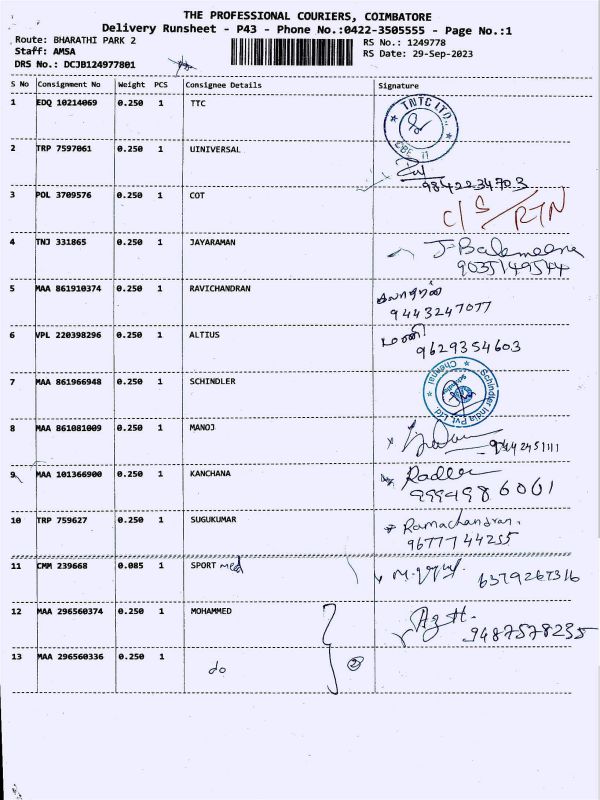 THE PROFESSIONAL COURIERS, COIMBATORE
Delivery Runsheet - P43 - Phone No.:0422-3505555 - Page No.:1
Route: BHARATHI PARK 2 RS No.: 1249778
Staff: AMSA RS Date: 29-Sep-2023
DRS No.: DCJB124977801
S No Consignment No Weight PCS Consignee Details Signature
1 EDQ 10214069 0.250 1 TTC TNTC LTD.,
2 TRP 7597061 0.250 1 UINIVERSAL 9842234703
3 POL 3709576 0.250 1 COT C/S/RTN
4 TNJ 331865 0.250 1 JAYARAMAN
9035149544
5 MAA 861910374 0.250 1 RAVICHANDRAN
9443247077
6 VPL 220398296 0.250 1 ALTIUS மணி
9629354603
7 MAA 861966948 0.250 1 SCHINDLER Schindler India Pvt. Ltd Chennai
8 MAA 861081009 0.250 1 MANOJ 9442451111
9 MAA 101366900 0.250 1 KANCHANA
9994986061
10 TRP 759627 0.250 1 SUGUKUMAR Ramachandran.
9677744255
11 CMM 239668 0.085 1 SPORT med 6379267316
12 MAA 296560374 0.250 1 MOHAMMED
9487578235
13 MAA 296560336 0.250 1 do 2